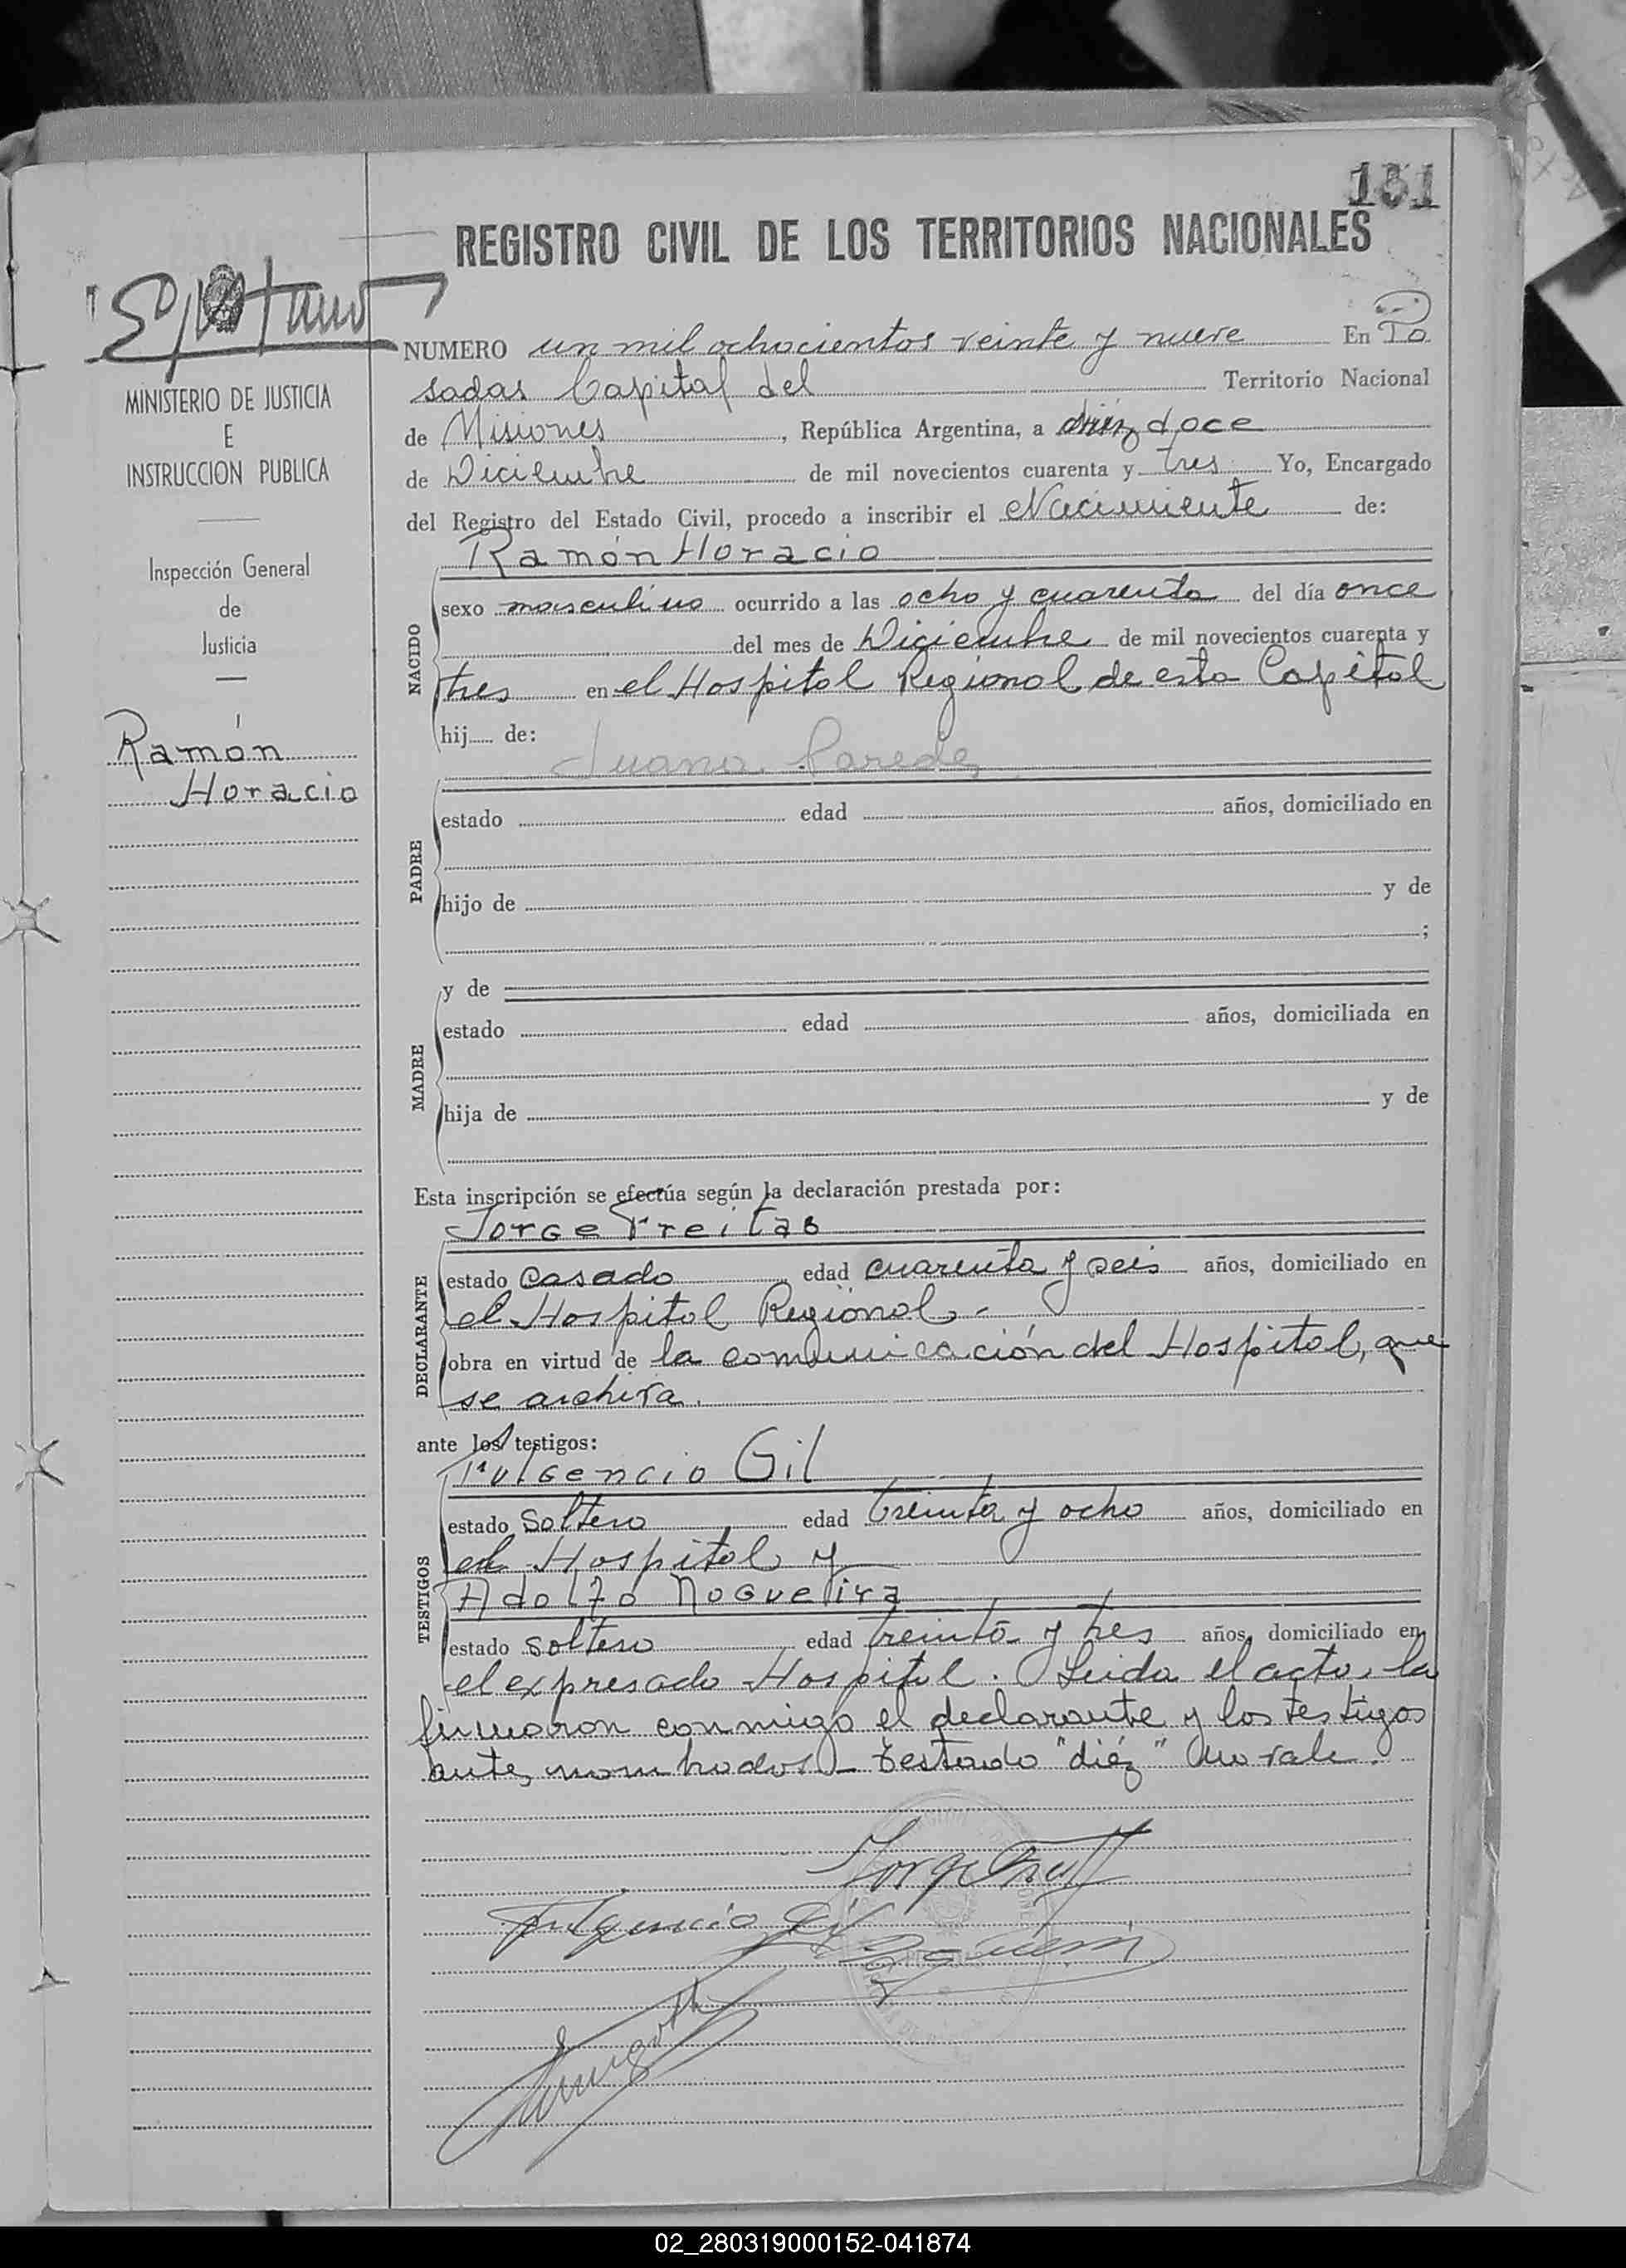 131
REGISTRO CIVIL DE LOS TERRITORIOS NACIONALES
NUMERO un mil ochocientos veinte y nueve En Po
sadas Capital del Territorio Nacional
de Misiones, República Argentina, a diéz doce
de Diciembre de mil novecientos cuarenta y tres Yo, Encargado
del Registro del Estado Civil, procedo a inscribir el Nacimiento de:
MINISTERIO DE JUSTICIA
E
INSTRUCCION PUBLICA
Inspección General
de
Justicia
Ramón
Horacio
NACIDO
Ramón Horacio
sexo masculino ocurrido a las ocho y cuarenta del día once
del mes de Diciembre de mil novecientos cuarenta y
tres en el Hospital Regional de esta Capital
hij de:
Juana Paredes
PADRE
estado edad años, domiciliado en
hijo de y de
;
MADRE
y de
estado edad años, domiciliada en
hija de y de
Esta inscripción se efectúa según la declaración prestada por:
DECLARANTE
Jorge Freitas
estado casado edad cuarenta y seis años, domiciliado en
el Hospital Regional.-
obra en virtud de la comunicación del Hospital, que
se archiva.
ante los testigos:
TESTIGOS
Fulgencio Gil
estado soltero edad treinta y ocho años, domiciliado en
el Hospital y
Adolfo Nogueira
estado soltero edad treinta y tres años, domiciliado en
el expresado Hospital. Leida el acta, la
firmaron conmigo el declarante y los testigos
antes nombrados.- Testado "diéz" no vale.
Fulgencio Gil
02_280319000152-041874